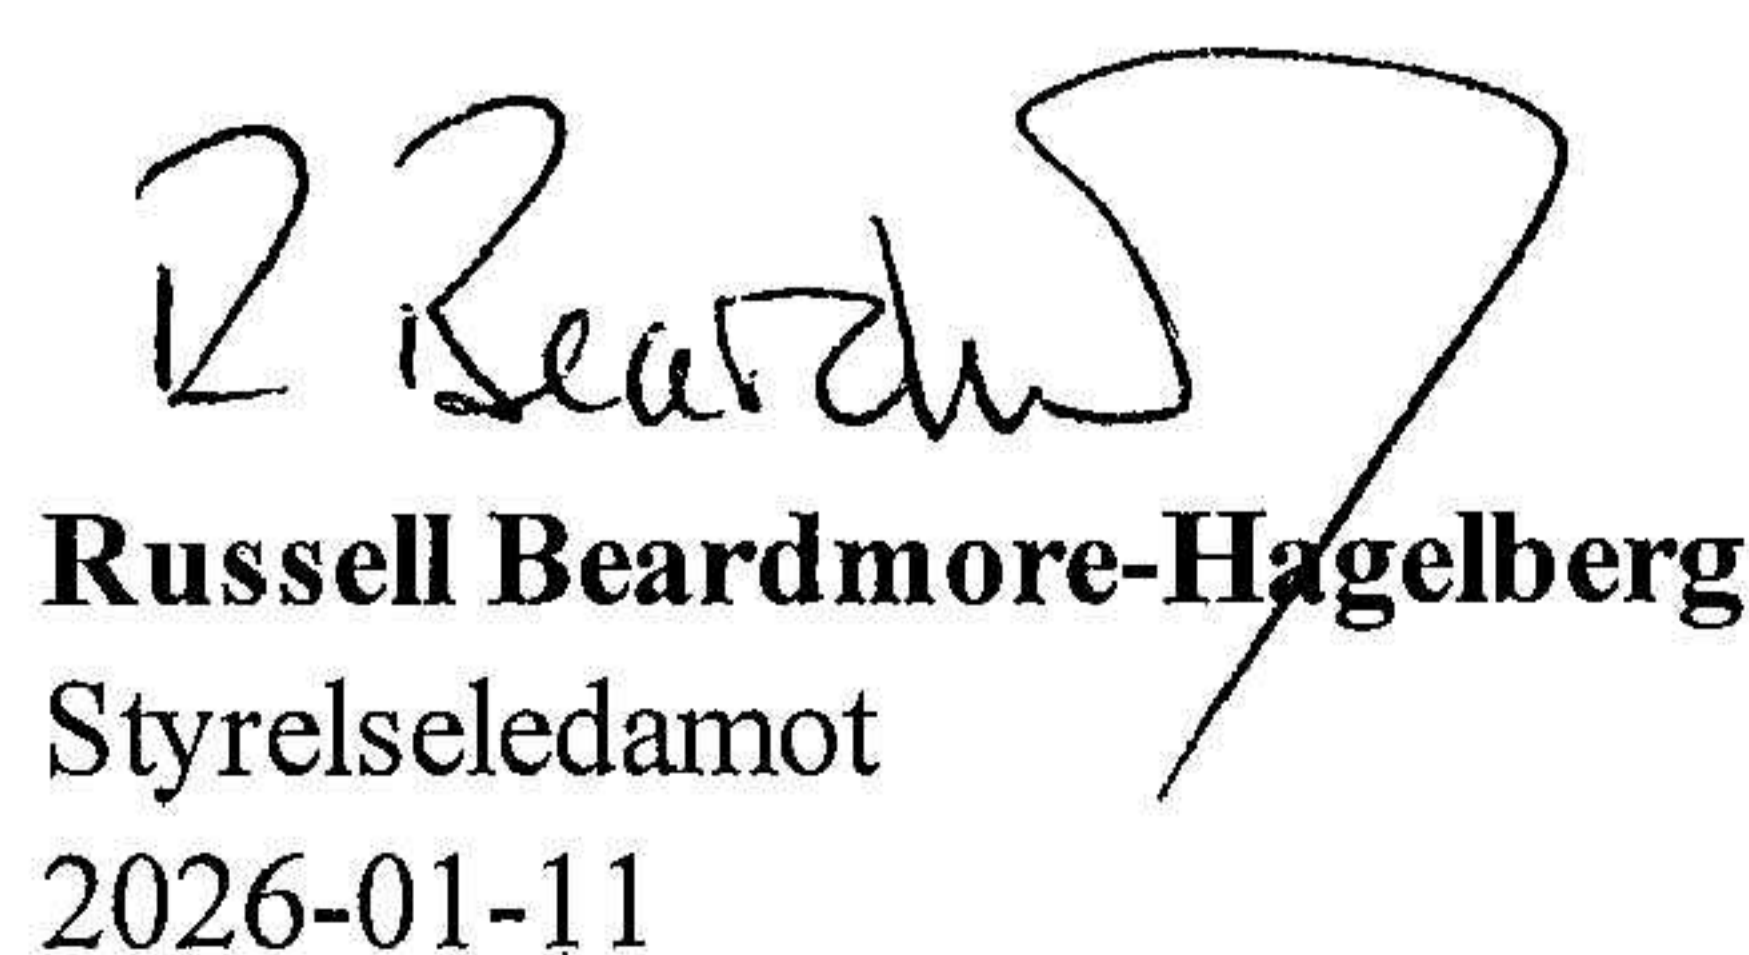 R Beard
Russell Beardmore-Hagelberg
Styrelseledamot
2026-01-11